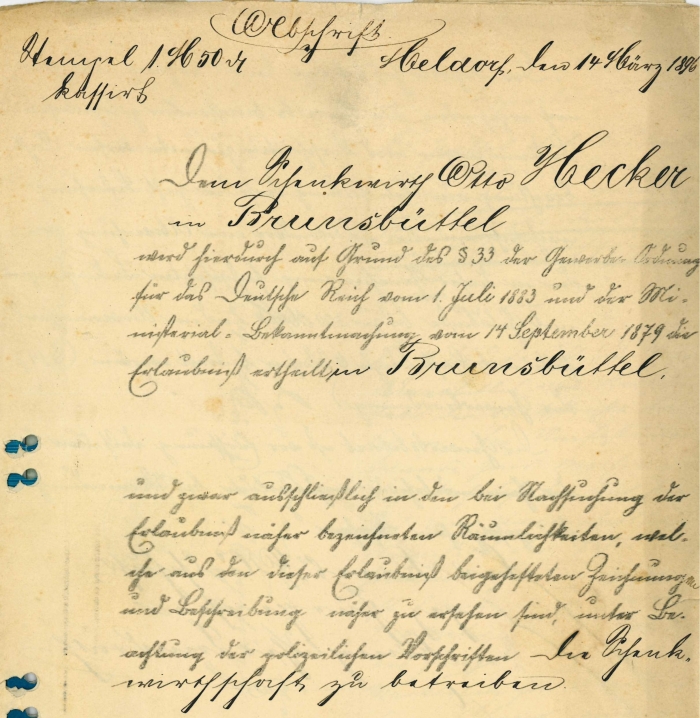 Abschrift.
Stempel 1 M 50 d
kassirt
Meldorf, den 14 März 1896
Dem Schenkwirth Otto Hecker
in Brunsbüttel
wird hierdurch auf Grund des § 33 der Gewerbe-Ordnung
für das Deutsche Reich vom 1. Juli 1883 und der Mi-
nisterial-Bekanntmachung vom 14 September 1879 die
Erlaubniß ertheilt, in Brunsbüttel,
und zwar ausschließlich in den bei Nachsuchung der
Erlaubniß näher bezeichneten Räumlichkeiten, wel-
che aus den dieser Erlaubniß beigehefteten Zeichnungen
und Beschreibung näher zu ersehen sind, unter Be-
achtung der polizeilichen Vorschriften die Schenk-
wirthschaft zu betreiben.